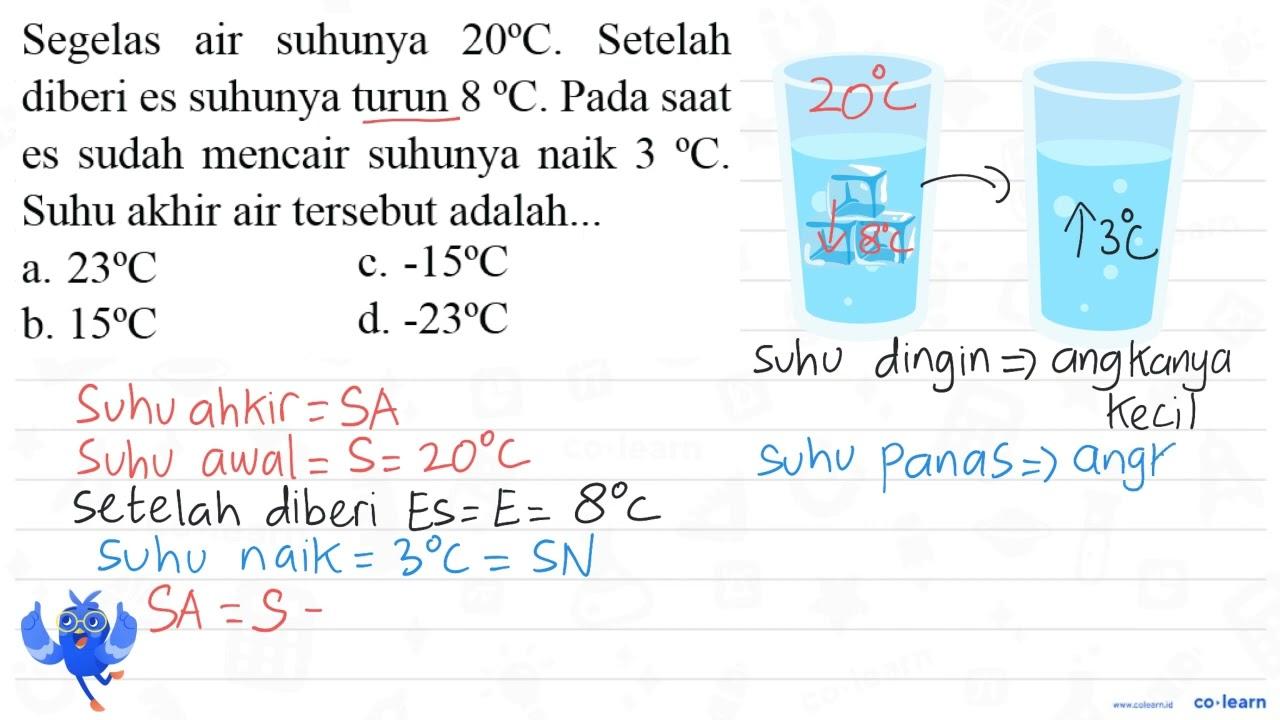 Segelas air suhunya 20ºC. Setelah
diberi es suhunya turun 8 ºC. Pada saat
es sudah mencair suhunya naik 3 ºC.
Suhu akhir air tersebut adalah...
a. 23ºC c. -15ºC
b. 15ºC d. -23ºC
20°C
↓ 8°C
↑3°C
suhu dingin => angkanya
kecil
suhu panas => angk
Suhu ahkir = SA
Suhu awal = S = 20°C
Setelah diberi Es = E = 8°C
Suhu naik = 3°C = SN
SA = S -
co·learn
co·learn
www.colearn.id co·learn